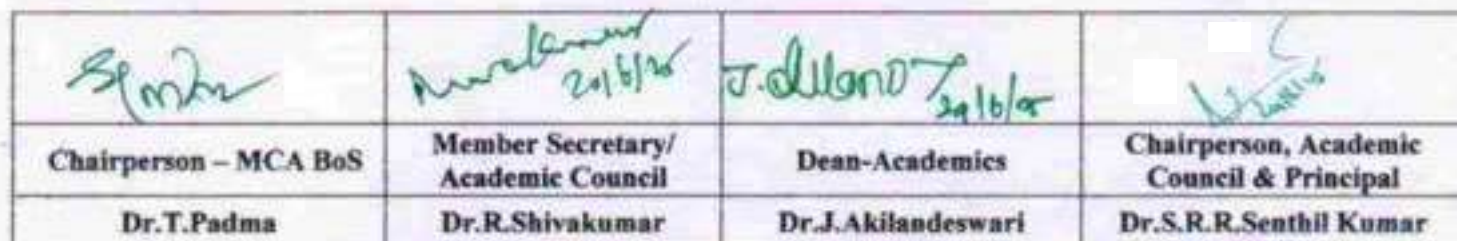 20/6/25
J.
Chairperson – MCA BoS
Member Secretary/
Academic Council
Dean-Academics
Chairperson, Academic
Council & Principal
Dr.T.Padma
Dr.R.Shivakumar
Dr.J.Akilandeswari
Dr.S.R.R.Senthil Kumar